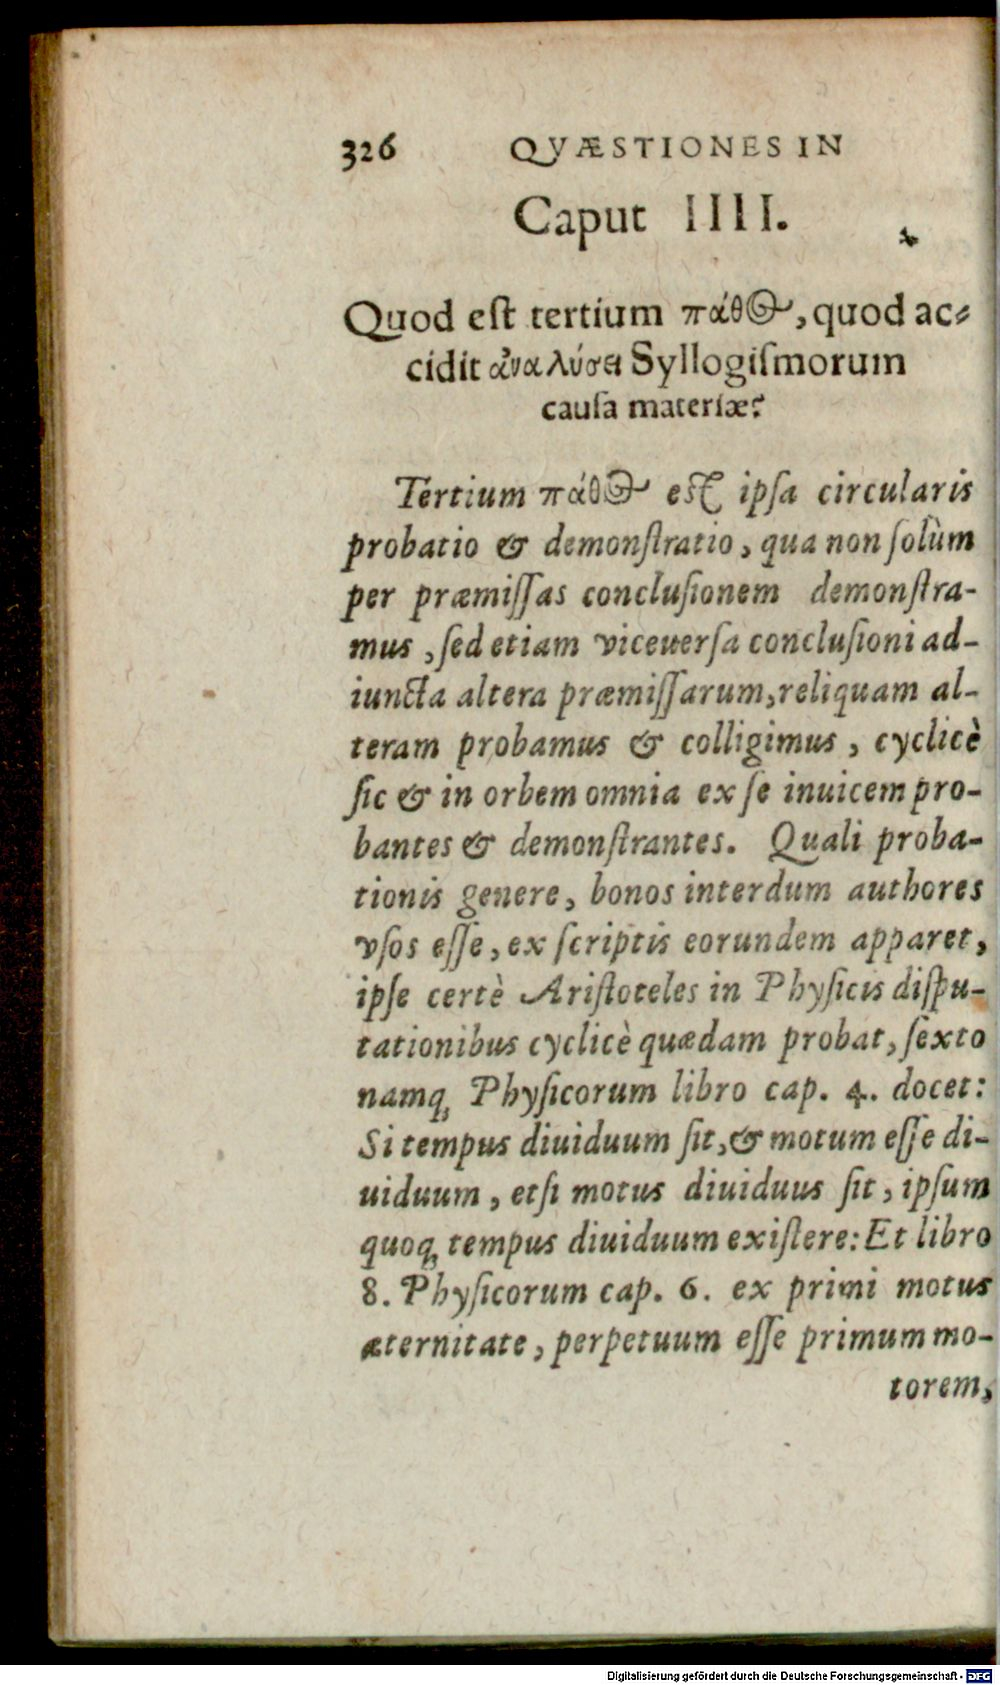 326 QVÆSTIONES IN
Caput IIII.
Quod eſt tertium πάθος, quod ac-
cidit ἀναλύσει Syllogiſmorum
cauſa materiæ?
Tertium πάθος eſt ipſa circularis
probatio & demonſtratio, qua non ſolùm
per præmiſſas concluſionem demonſtra-
mus, ſed etiam viceuerſa concluſioni ad-
iuncta altera præmiſſarum, reliquam al-
teram probamus & colligimus, cyclicè
ſic & in orbem omnia ex ſe inuicem pro-
bantes & demonſtrantes. Quali proba-
tionis genere, bonos interdum authores
vſos eſſe, ex ſcriptis eorundem apparet,
ipſe certè Ariſtoteles in Phyſicis diſpu-
tationibus cyclicè quædam probat, ſexto
namq́; Phyſicorum libro cap. 4. docet:
Si tempus diuiduum ſit, & motum eſſe di-
uiduum, etſi motus diuiduus ſit, ipſum
quoq́; tempus diuiduum exiſtere: Et libro
8. Phyſicorum cap. 6. ex primi motus
æternitate, perpetuum eſſe primum mo-
torem,
Digitalisierung gefördert durch die Deutsche Forschungsgemeinschaft - DFG